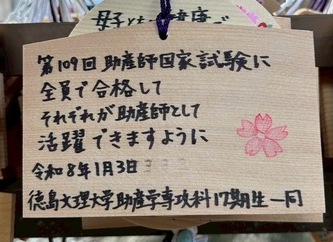 母子ともに健康で
第109回 助産師国家試験に
全員で合格して
それぞれが助産師として
活躍できますように
令和8年1月3日
徳島文理大学助産学専攻科17期生一同